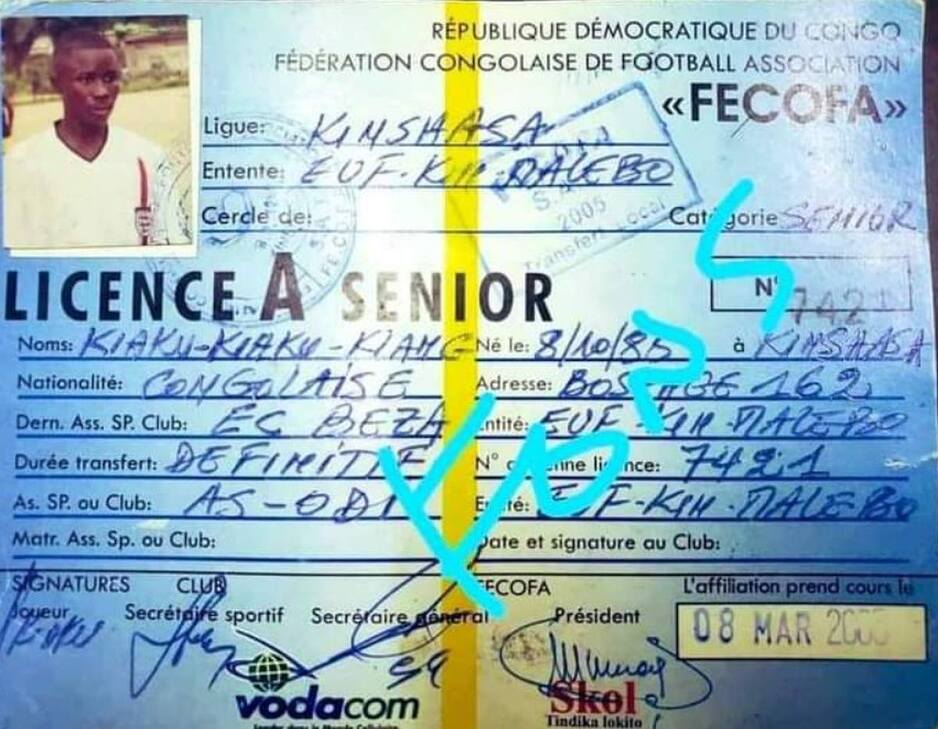 RÉPUBLIQUE DÉMOCRATIQUE DU CONGO
FÉDÉRATION CONGOLAISE DE FOOTBALL ASSOCIATION
«FECOFA»
Ligue: KINSHASA
Entente: EUF-KIN MALEBO
Cercle de:
Catégorie SENIOR
2005
Transfert Local
LICENCE A SENIOR
N° 7421
Noms: KIAKU-KIAKU-KIANG Né le: 8/10/85 à KINSHASA
Nationalité: CONGOLAISE Adresse: 162
Dern. Ass. SP. Club: EC BEZA Entité: EUF-KIN-MALEBO
Durée transfert: DEFINITIF N° licence: 7421
As. SP. ou Club: AS-ODI Entité: EUF-KIN-MALEBO
Matr. Ass. Sp. ou Club: Date et signature au Club:
SIGNATURES CLUB FECOFA L'affiliation prend cours le
Joueur Secrétaire sportif Secrétaire général Président
08 MAR
vodacom
Leader dans le Monde Cellulaire
Skol
Tindika lokito